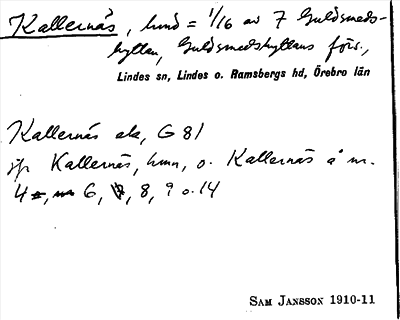 Kallernäs, hmd = 1/16 av 7 Guldsmeds-
hyttan, Guldsmedshyttans förs.,
Lindes sn, Lindes o. Ramsbergs hd, Örebro län
Kallernäs ek, G 81
jfr Kallernäs, hmn, o. Kallernäs å nr.
4, 6, 8, 9 o. 14
SAM JANSSON 1910-11